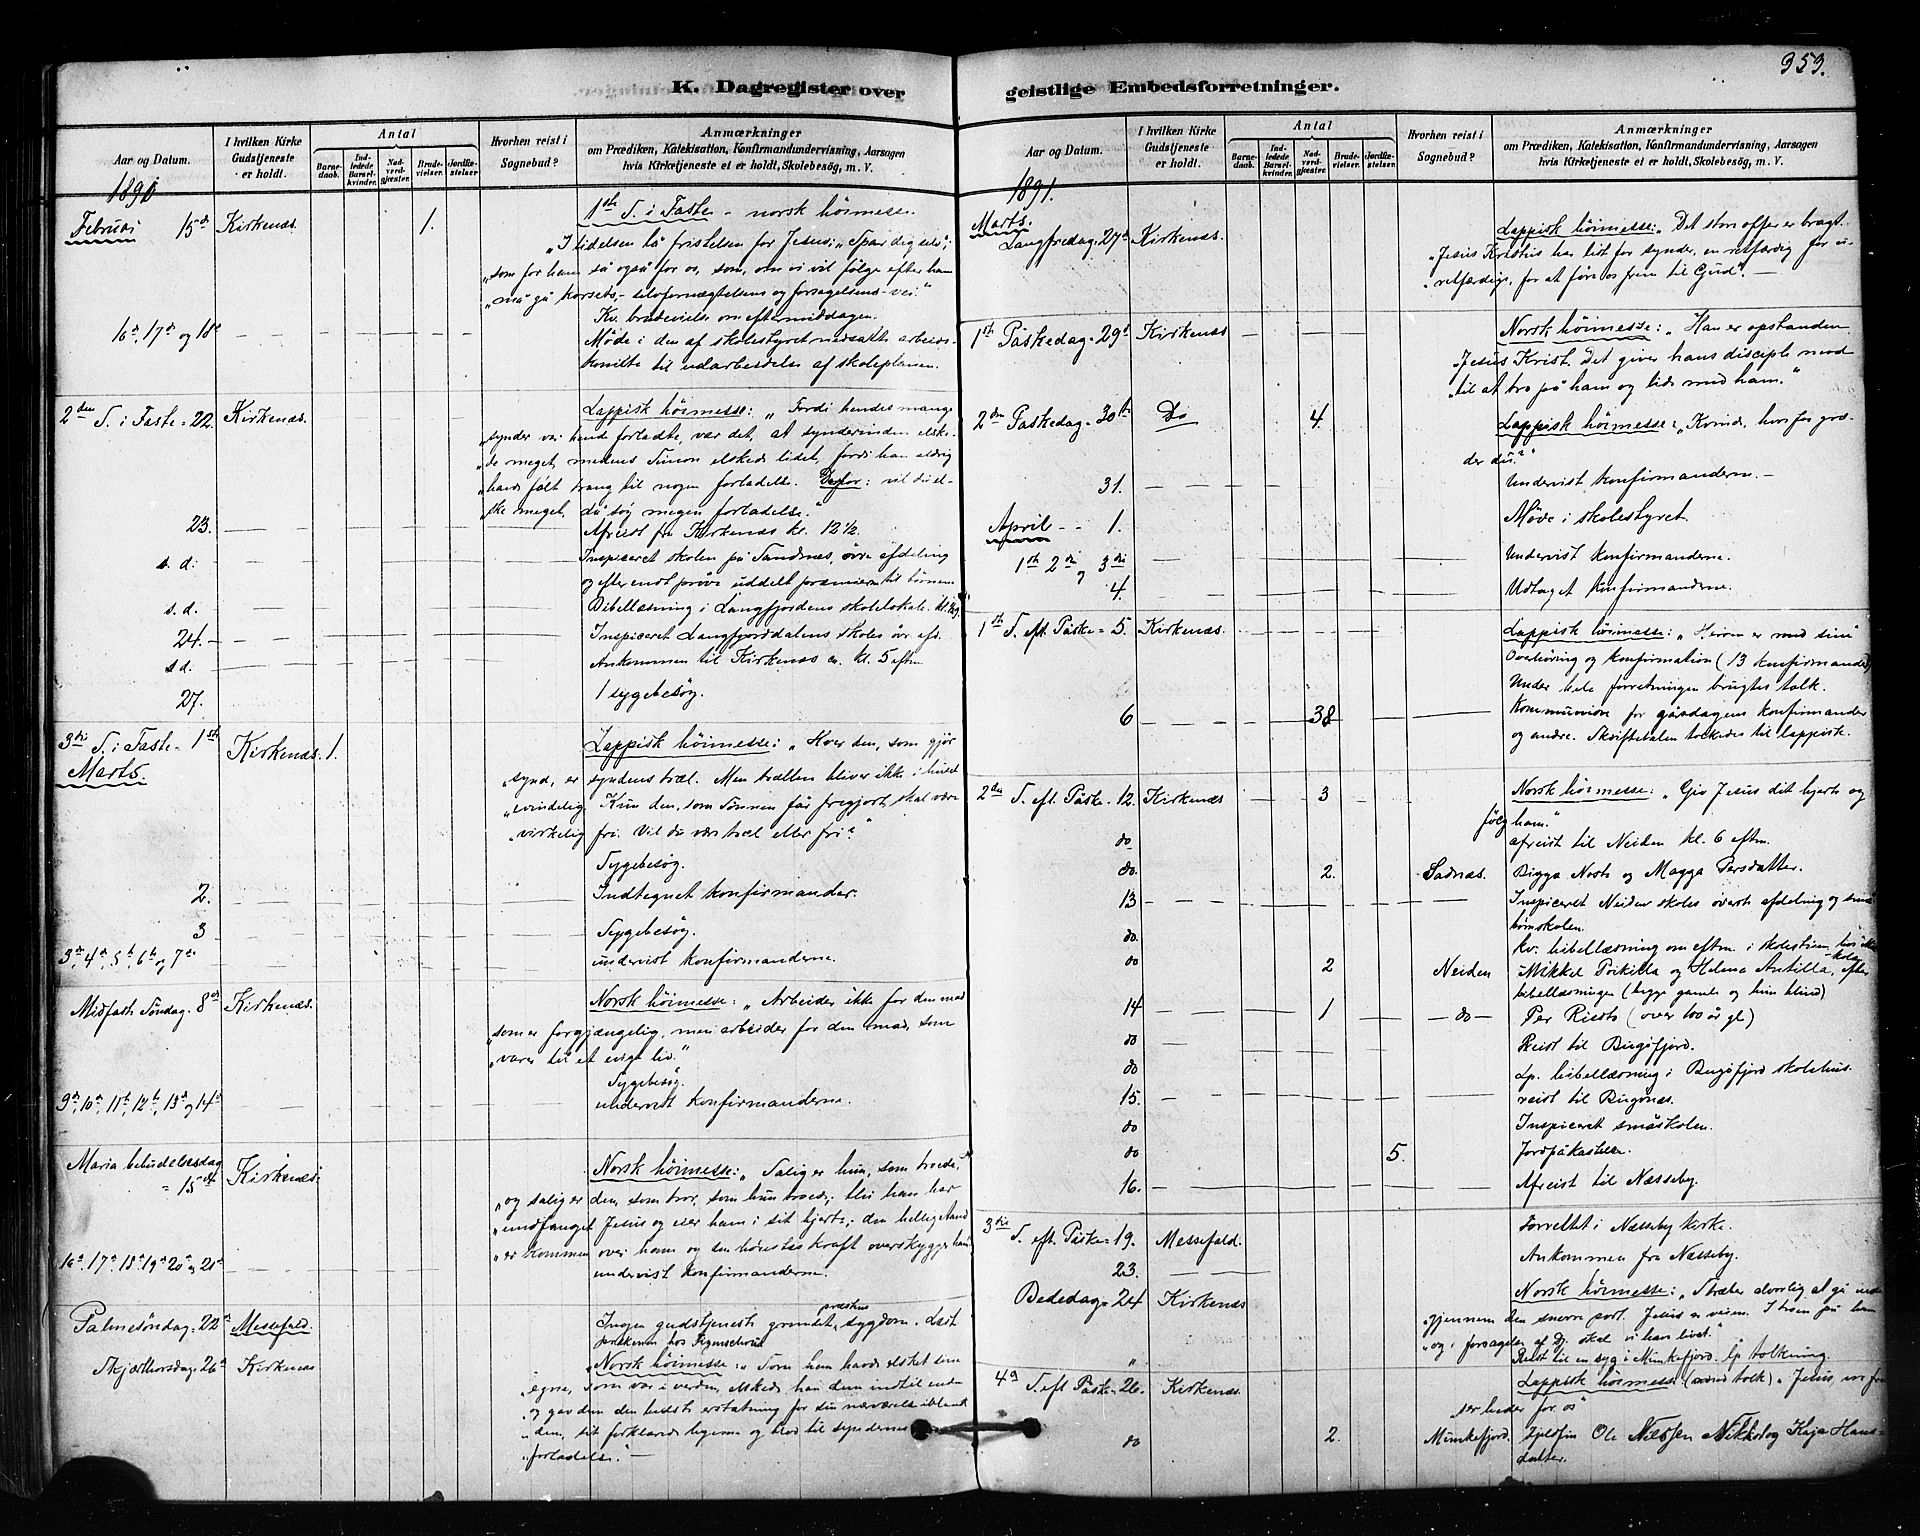 K. Dagregister over
Aar og Datum.
I hvilken Kirke Gudstjeneste er holdt.
Antal
Barnedaab.
Indledede Barselkvinder.
Nadverdgjæster.
Brudevielser.
Jordfæstelser.
Hvorhen reist i Sognebud?
Anmærkninger
om Prædiken, Katekisation, Konfirmandundervisning, Aarsagen
hvis Kirketjeneste et er holdt, Skolebesög, m. V.
Februar 15de Kirkenæs. 1. 1ste S. i Faste - norsk höimesse.
"I lidelsen lå fristelsen for Jesus: "Spar dig selv";
"som for ham så også for os, som, om vi vil fölge efter ham
"må gå korsets, - selvfornægtelsens og forsagelsens - vei."
Kv. brudevielse om eftermiddagen.
16de, 17de og 18de Möde i den af skolestyret nedsatte arbeids-
komite til udarbeidelse af skoleplanen.
2den S. i Faste = 22. Kirkenæs. Lappisk höimesse: "Fordi hendes mange
"synder var hende forladte, var det, at synderinden elske-
"de meget, medens Simon elskede lidet, fordi han aldrig
"havde fölt trang til nogen forladelse. Derfor: vil du el-
"ske meget, då søg megen forladelse."
23. Afreist fra Kirkenæs kl. 12½.
s. d. Inspiceret skolen på Sandnæs, övre afdeling
og efter endt pröve uddelt præmier til börnene
s. d. Bibellæsning i Langfjordens skolelokale.
24. Inspiceret Langfjorddalens skoles övr. afd.
s. d. Ankommen til Kirkenæs ca. kl. 5 eftm
27. 1 sygebesög.
3die S. i Faste - 1ste Marts. Kirkenæs. 1. Lappisk höimesse: "Hver den, som gjör
"synd, er syndens træl. Men trællen bliver ikke i huset
evindelig Kun den, som Sönnen får frigjort skal være
"virkelig fri. Vil du være træl eller fri?"
Sygebesög.
2. Indtegnet konfirmander.
3 Sygebesög.
3die, 4de, 5te, 6te og 7de undervist konfirmanderne.
Midfaste Söndag. 8de Kirkenæs. Norsk höimesse: "Arbeider ikke for den mad
"som er forgjængelig, men arbeider for den mad, som
"varer til et evigt liv."
Sygebesög.
9de, 10de, 11te, 12te, 13de og 14de undervist konfirmanderne.
Maria bebudelsesdag = 15de Kirkenæs. Norsk höimesse: "Salig er hun, som troede,"
"og salig er den, som tror, som hun troede; thi han har
"undfanget Jesus og eier ham i sit hjerte; den helligeånd
"er kommen over ham og den höiestes kraft overskygger ham
16de 17de 18de 19de 20de og 21de undervist konfirmanderne.
Palmesöndag = 22de Messefald. Ingen gudstjeneste grundet præstens sygdom. Læst
Skjærthorsdag = 26de Kirkenæs "Norsk höimesse: "Som han havde elsket sine
egne, som var i verden, elskede han dem indtil end-
" og gav dem den bedste erstatning for sin nærværelse iblandt
"dem, sit forklarede legeme og blod til syndernes
"forladelse." -
geistlige Embedsforretninger.
353.
Aar og Datum.
I hvilken Kirke Gudstjeneste er holdt.
Antal
Barnedaab.
Indledede Barselkvinder.
Nadverdgjæster.
Brudevielser.
Jordfæstelser.
Hvorhen reist i Sognebud?
Anmærkninger
om Prædiken, Katekisation, Konfirmandundervisning, Aarsagen
hvis Kirketjeneste et er holdt, Skolebesög, m. V.
1891.
Marts.
Langfredag = 27de Kirkenæs. Lappisk höimesse: "Det store offer er bragt.
"Jesus Kristus har lidt for synder, en retfærdig for u-
"retfærdige, for at före os frem til Gud". -
1ste Påskedag = 29de Kirkenæs Norsk höimesse: "Han er opstanden
Jesus Krist. Det giver hans disciple mod
"til at tro på ham og lide med ham."
2den Påskedag = 30te Do 4. Lappisk höimesse: "Kvinde, hvorfor græ-
der du?"
31. Undervist konfirmanderne. -
April - - 1. Möde i skolestyret.
1ste 2den og 3die Undervist konfirmanderne.
4. Udtaget konfirmanderne.
1ste S. eft. Påske = 5. Kirkenæs. Lappisk höimesse: "Herren er med sine
Overhöring og konfirmation (13 konfirmander)
Under hele forretningen brugtes tolk.
6 38 Kommunion for gårsdagens konfirmander
og andre. Skriftetalen tolkedes til lappisk.
2den S. eft. Påske = 12. Kirkenæs 3 Norsk höimesse: "Giv Jesus dit hjerte og
fölg ham."
do afreist til Neiden kl. 6 eftm.
do. 2. Sadnæs. Bigga Norts og Magga Persdatter.
13 Inspiceret Neiden skoles överste afdeling og små
börnskolen.
do. Kv. bibellæsning om eftm. i skolestuen
do 2 Neiden Mikkel Poikilla og Helena Antilla, efter
bibellæsningen (begge gamle og hun blind)
14 1 - do - Per Riesto (over 100 år gl)
do Reist til Bugöfjord.
do Lp. bibellæsning i Bugöfjord skolehus.
15. reist til Bugönæs.
do Inspiceret småskolen.
do 5. Jordpåkastelse.
16. Afreist til Næsseby.
3die S. eft. Påske = 19. Messefald. Forrettet i Næsseby kirke.
23. Ankommen fra Næsseby.
Bededag = 24 Kirkenæs Norsk höimesse: "Stræber alvorlig at gå ind
"gjennem den snevre port. Jesus er veien. I troen på ham
"og i forsagelse af Dj. skal vi have livet."
" Reist til en syg i Munkefjord. lp tolkning.
4de S. eft Påske = 26. Kirkenæs. Lappisk höimesse (med tolk) "Jesus
beder for os"
do 2. Munkefjord. Fjeldfin Ole Nilssen Nikkol og Kaja Hans-
datter.